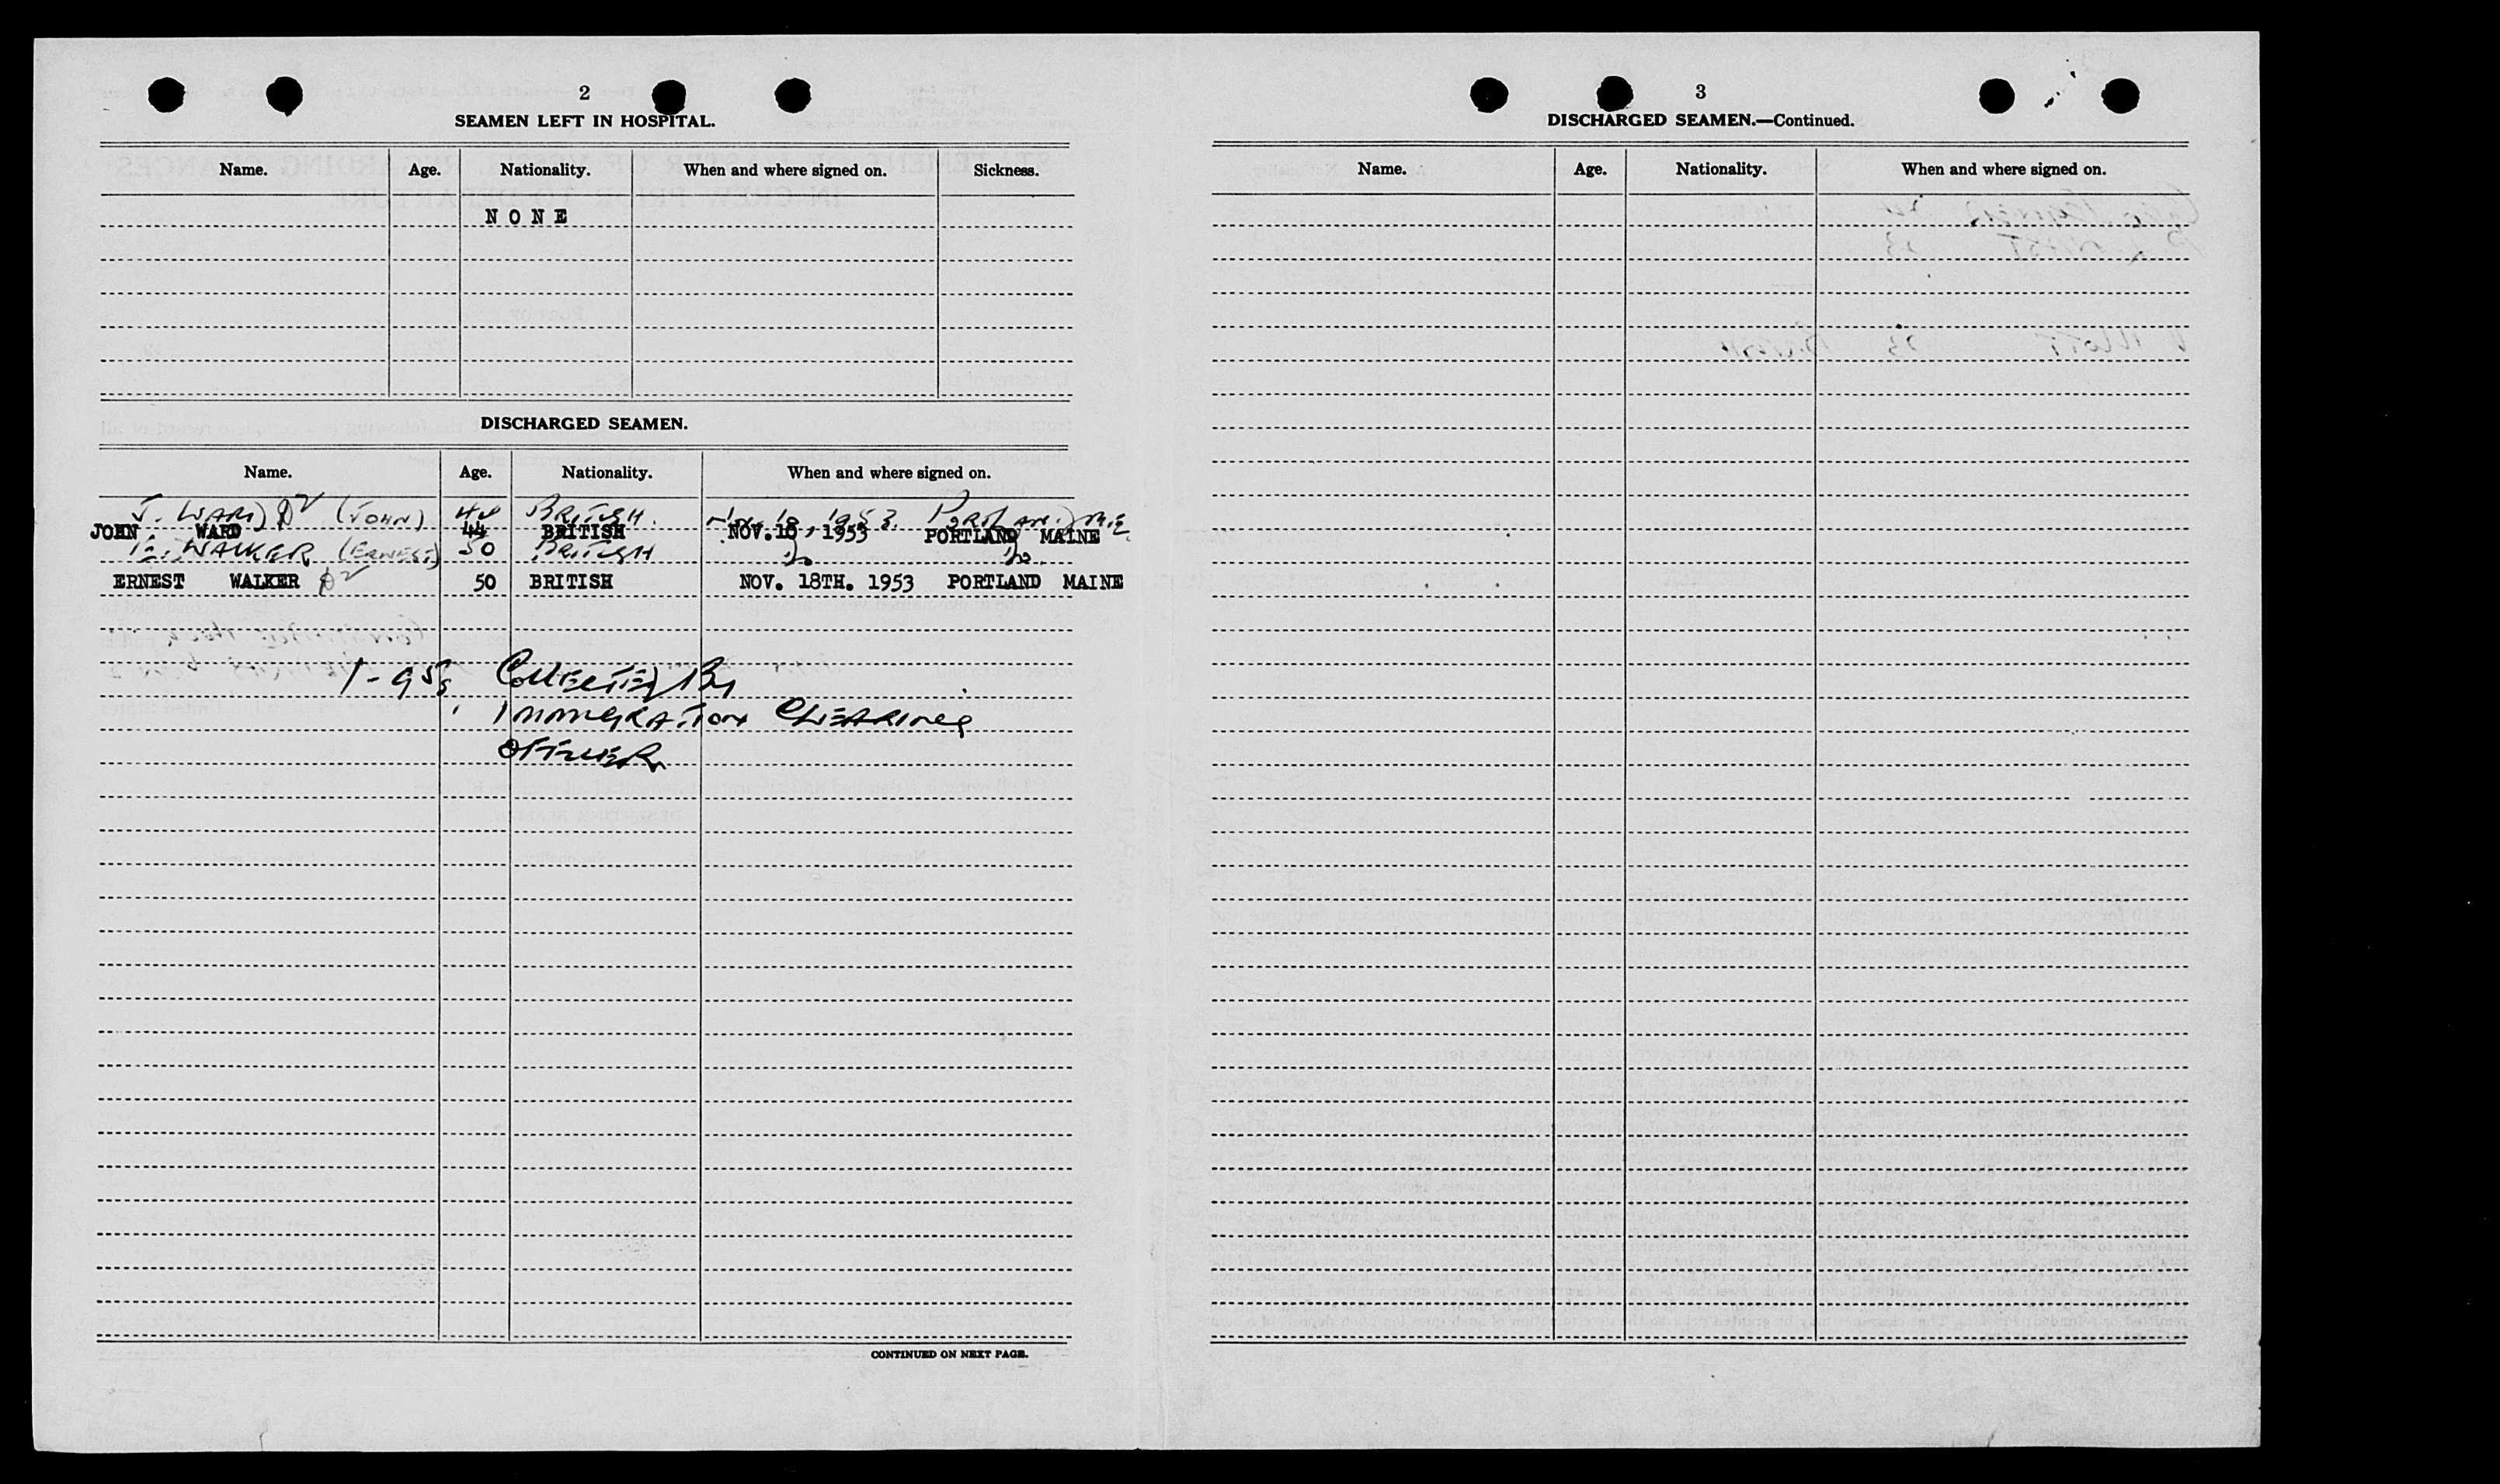 2
SEAMEN LEFT IN HOSPITAL.
Name. Age. Nationality. When and where signed on. Sickness.
NONE
DISCHARGED SEAMEN.
Name. Age. Nationality. When and where signed on.
J. WARD (JOHN) 44 BRITISH. Nov. 18, 1953. PORTLAND, ME.
JOHN WARD 44 BRITISH NOV. 18, 1953 PORTLAND MAINE
E. WALKER (ERNEST) 50 BRITISH Do Do.
ERNEST WALKER 50 BRITISH NOV. 18TH. 1953 PORTLAND MAINE
1-95s COLLECTED BY
IMMIGRATION CLEARING
OFFICER
CONTINUED ON NEXT PAGE.
3
DISCHARGED SEAMEN.—Continued.
Name. Age. Nationality. When and where signed on.